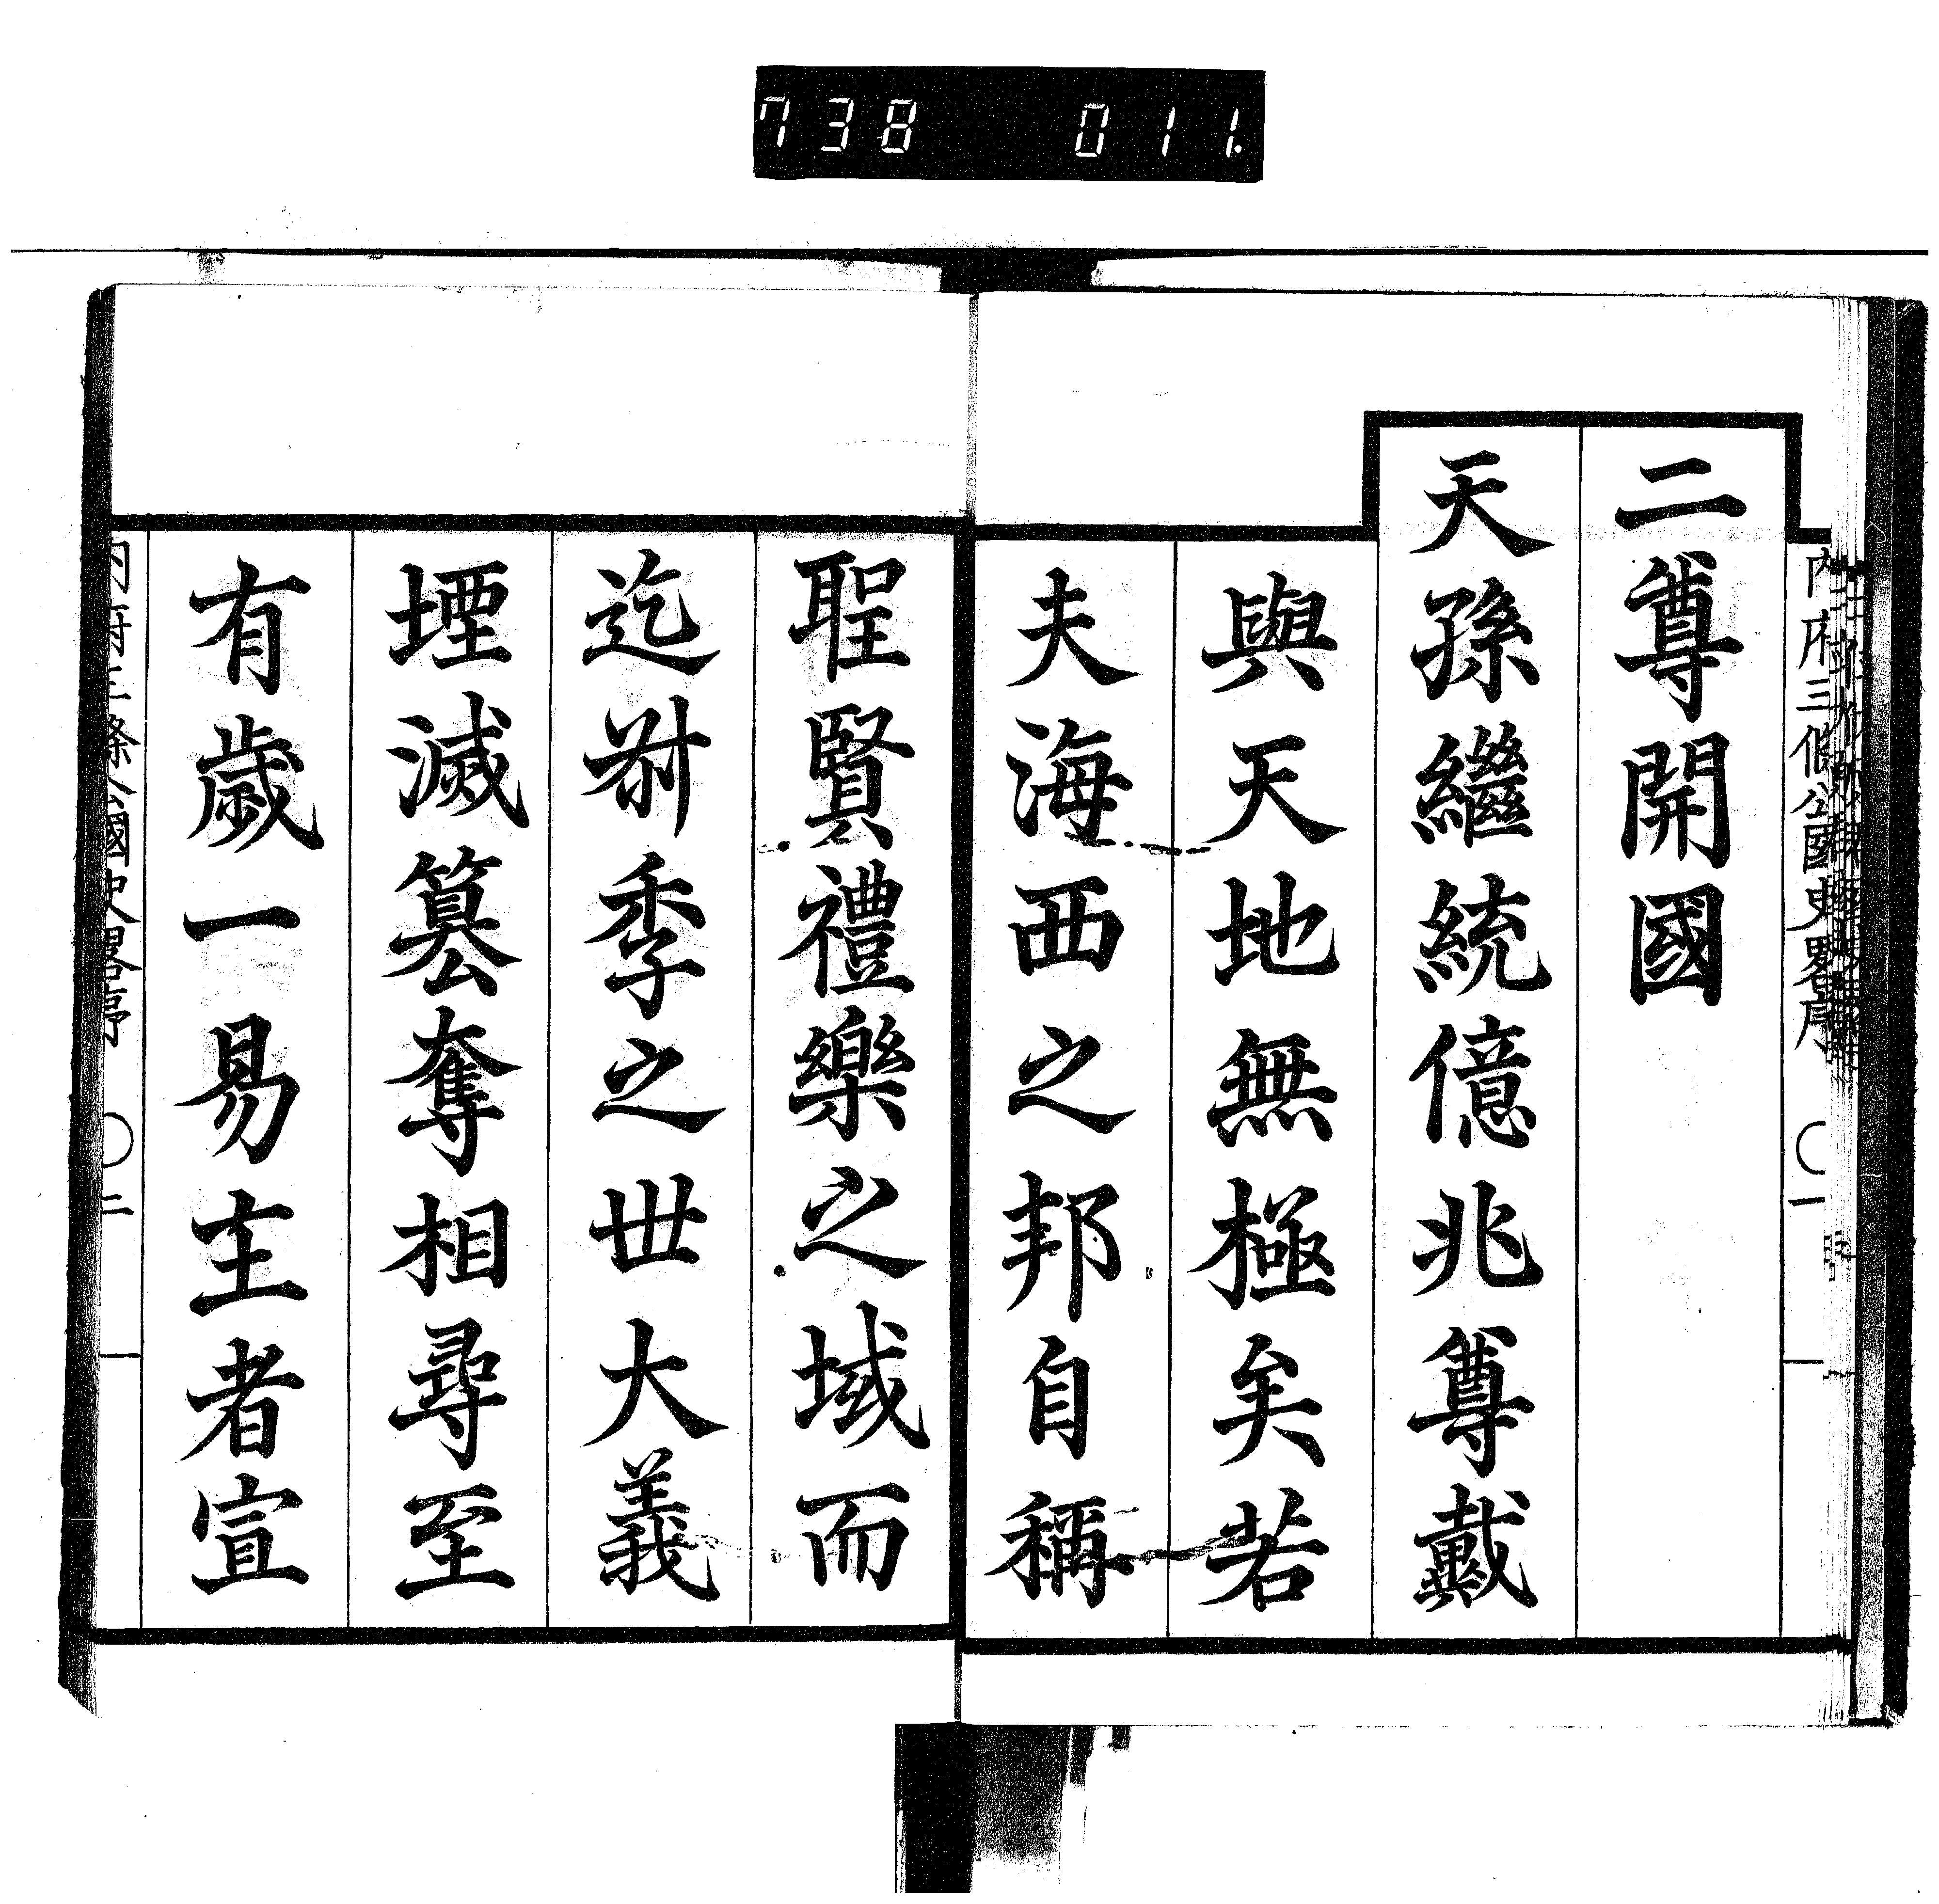 738 011.
内府三條公國史畧序 〇一
二尊開國
天孫繼統億兆尊戴
與天地無極矣若
夫海西之邦自稱
聖賢禮樂之域而
迄叔季之世大義
堙滅篡奪相尋至
有歲一易主者宣
内府三條公國史畧序 〇二